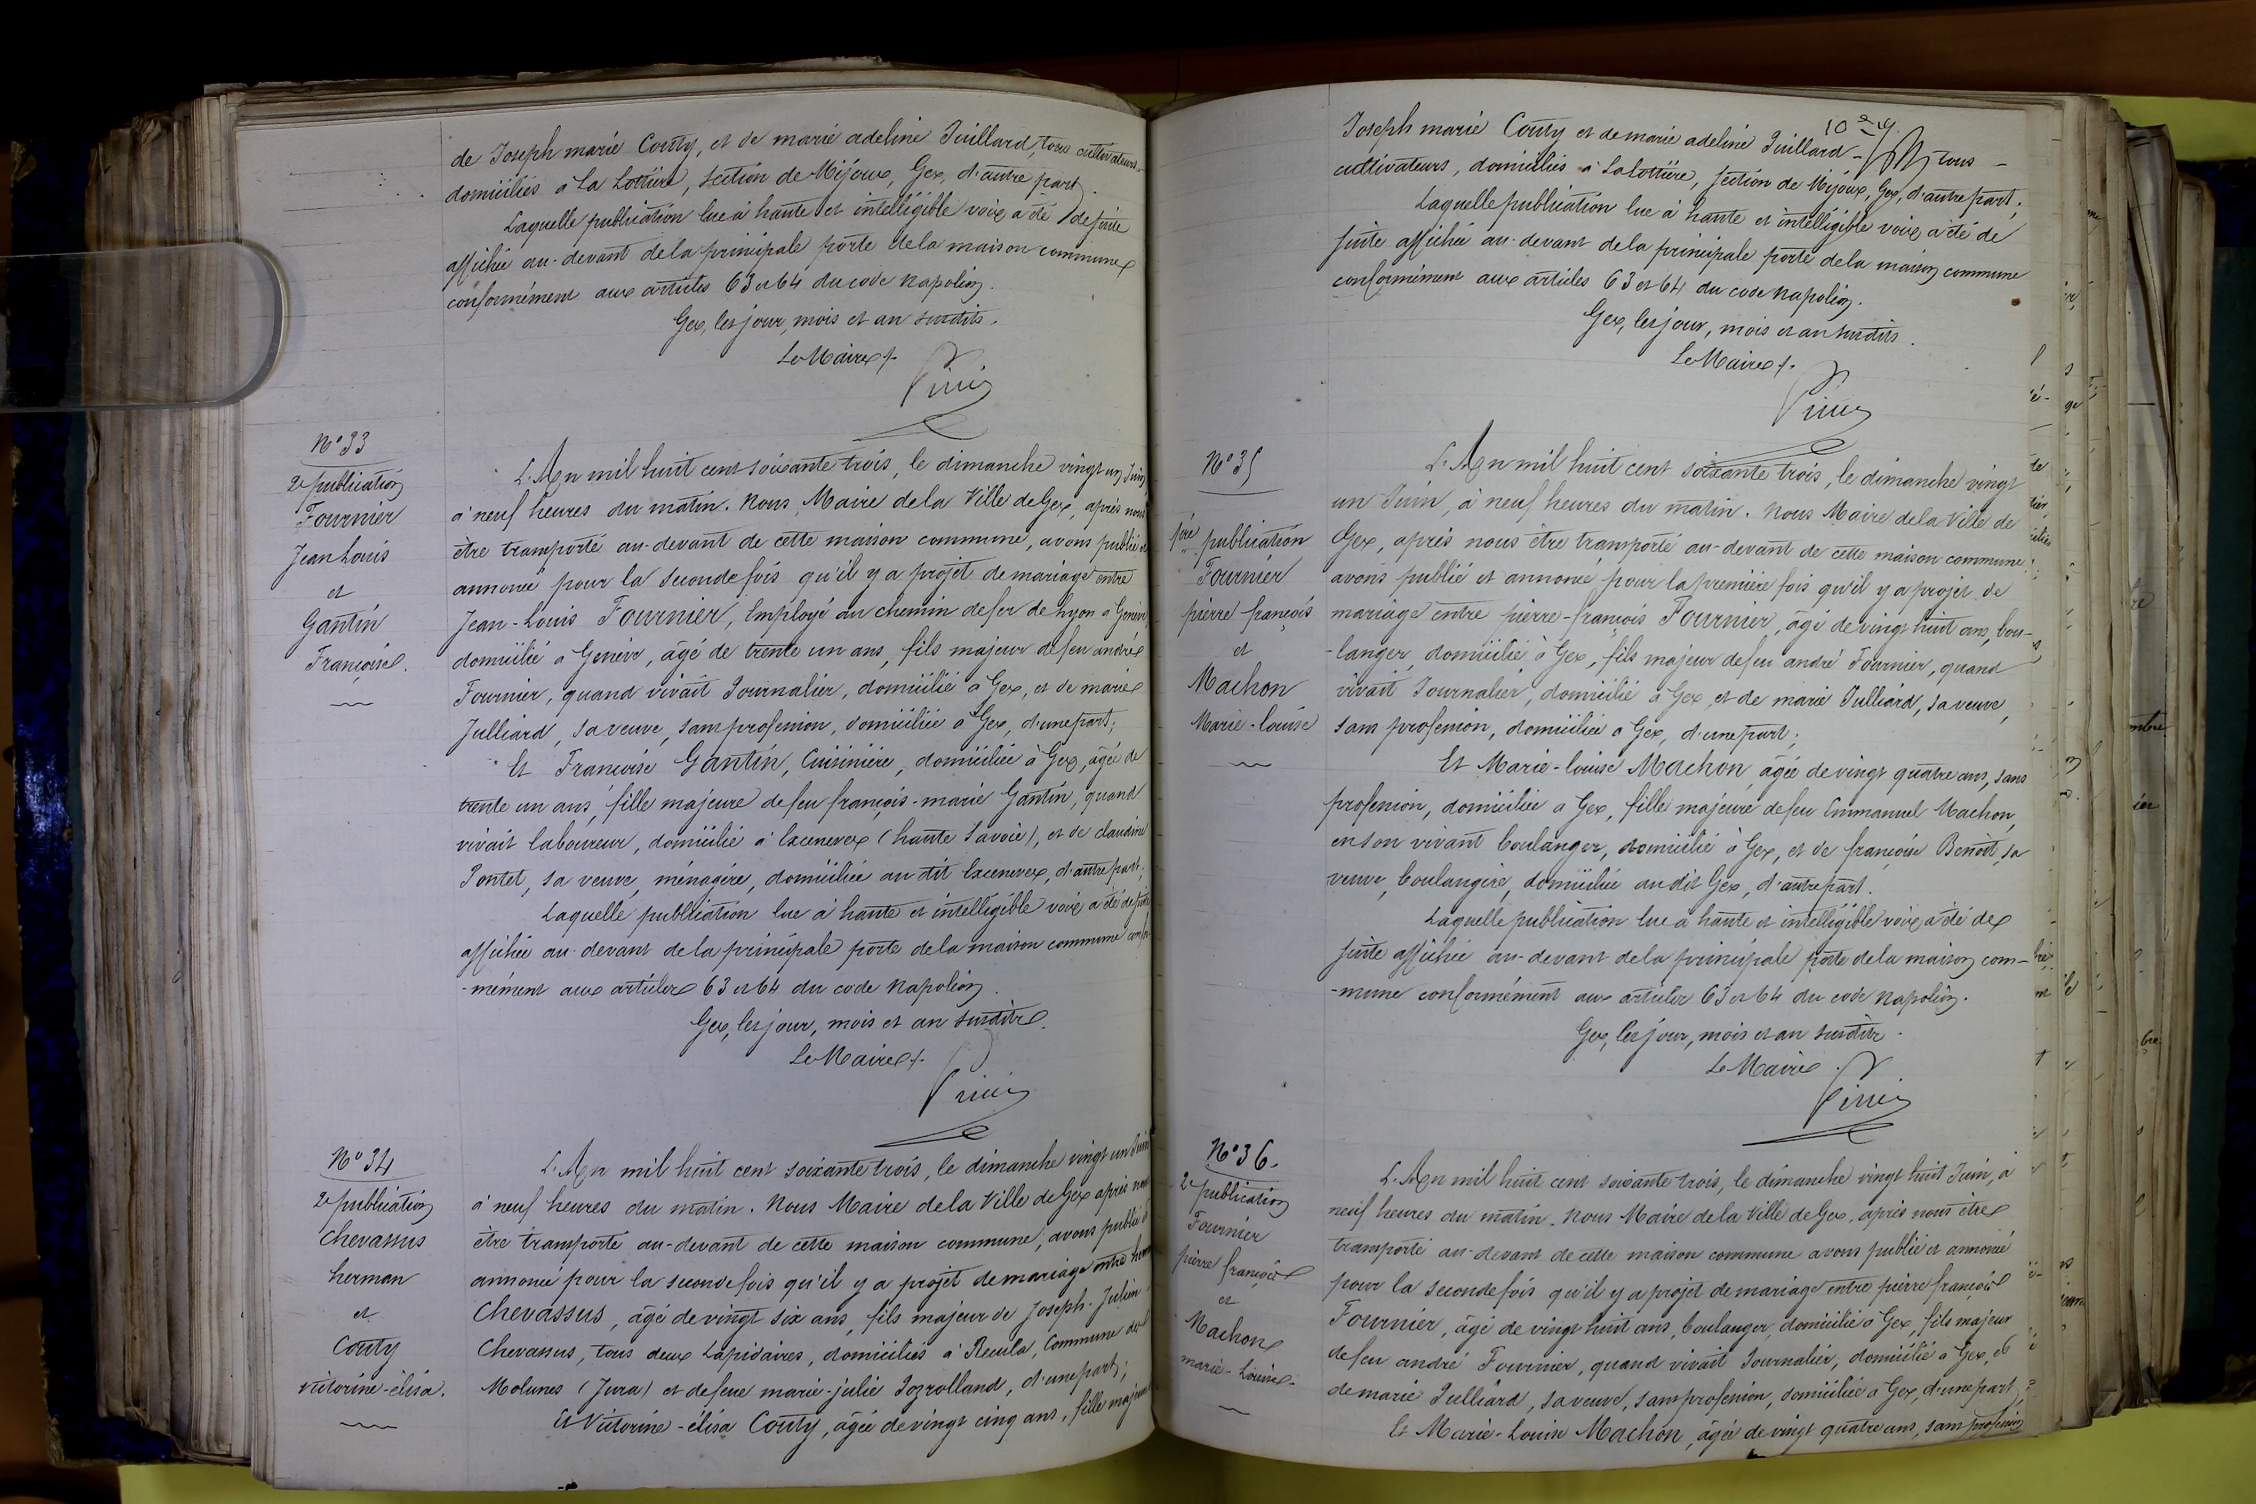 de Joseph marie Couty, et de marie adeline Juillard, tous cultivateurs
domiciliés à La Lottière, section de Mijoux, Gex, d'autre part.
Laquelle publication lue à haute et intelligible voix a été de suite
affichée au-devant de la principale porte de la maison commune
conformément aux articles 63 et 64 du code napoléon.
Gex, les jour, mois et an susdits.
Le Maire
N° 33
2e publication
Fournier
Jean Louis
et
Gantin
Françoise.
L'An mil huit cent soixante trois, le dimanche vingt un Juin
à neuf heures du matin. Nous Maire de la Ville de Gex, après nous
être transporté au-devant de cette maison commune, avons publié et
annoncé pour la seconde fois qu'il y a projet de mariage entre
Jean-Louis Fournier, Employé au chemin de fer de Lyon à Genève
domicilié à Genève, âgé de trente un ans, fils majeur de feu andré
Fournier, quand vivait Journalier, domicilié à Gex, et de marie
Julliard, sa veuve, sans profession, domiciliée à Gex, d'une part;
Et Françoise Gantin, Cuisinière, domiciliée à Gex, âgée de
trente un ans, fille majeure de feu françois-marie Gantin, quand
vivait laboureur, domicilié à Excenevex (haute Savoie), et de claudine
Pontet, sa veuve, ménagère, domiciliée au dit Excenevex, d'autre part;
Laquelle publication lue à haute et intelligible voix a été de suite
affichée au-devant de la principale porte de la maison commune confor
-mément aux articles 63 et 64 du code napoléon.
Gex, les jour, mois et an susdits.
Le Maire
N° 34
2e publication
Chevassus
herman
et
Couty
victorine-élisa.
L'An mil huit cent soixante trois, le dimanche vingt un Juin
à neuf heures du matin. Nous Maire de la Ville de Gex après nous
être transporté au-devant de cette maison commune, avons publié et
annoncé pour la seconde fois qu'il y a projet de mariage entre herman
Chevassus, âgé de vingt six ans, fils majeur de Joseph-Julien
Chevassus, tous deux Lapidaires, domiciliés à Recula, Commune de
Molunes (Jura) et de feue marie-julie Jozrolland, d'une part;
Et Victorine-élisa Couty, âgée de vingt cinq ans, fille majeure
10e
Joseph marie Couty et de marie adeline Juillard - tous -
cultivateurs, domiciliés à La Lottière, section de Mijoux, Gex, d'autre part;
Laquelle publication lue à haute et intelligible voix a été de
suite affichée au-devant de la principale porte de la maison commune
conformément aux articles 63 et 64 du code napoléon.
Gex, les jour, mois et an susdits.
Le Maire
N° 35
1ère publication
Fournier
pierre-françois
et
Machon
Marie-louise
L'An mil huit cent soixante trois, le dimanche vingt
un Juin, à neuf heures du matin. Nous Maire de la Ville de
Gex, après nous être transporté au-devant de cette maison commune
avons publié et annoncé pour la première fois qu'il y a projet de
mariage entre pierre-françois Fournier, âgé de vingt huit ans, bou-
-langer, domicilié à Gex, fils majeur de feu andré Fournier, quand
vivait Journalier, domicilié à Gex et de marie Julliard, sa veuve,
sans profession, domiciliée à Gex, d'une part;
Et Marie-louise Machon, âgée de vingt quatre ans, sans
profession, domiciliée à Gex, fille majeure de feu Emmanuel Machon,
en son vivant boulanger, domicilié à Gex, et de françoise Benoit, sa
veuve, boulangère, domiciliée au dit Gex, d'autre part.
Laquelle publication lue à haute et intelligible voix a été de
suite affichée au-devant de la principale porte de la maison com-
-mune conformément aux articles 63 et 64 du code napoléon.
Gex, les jour, mois et an susdits.
Le Maire
N° 36.
2e publication
Fournier
pierre françois
et
Machon
marie-Louise.
L'An mil huit cent soixante trois, le dimanche vingt huit Juin, à
neuf heures du matin. Nous Maire de la Ville de Gex, après nous être
transporté au-devant de cette maison commune avons publié et annoncé
pour la seconde fois qu'il y a projet de mariage entre pierre françois
Fournier, âgé de vingt huit ans, boulanger, domicilié à Gex, fils majeur
de feu andré Fournier, quand vivait Journalier, domicilié à Gex, et
de marie Julliard, sa veuve, sans profession, domiciliée à Gex, d'une part,
Et Marie-Louise Machon, âgée de vingt quatre ans, sans profession